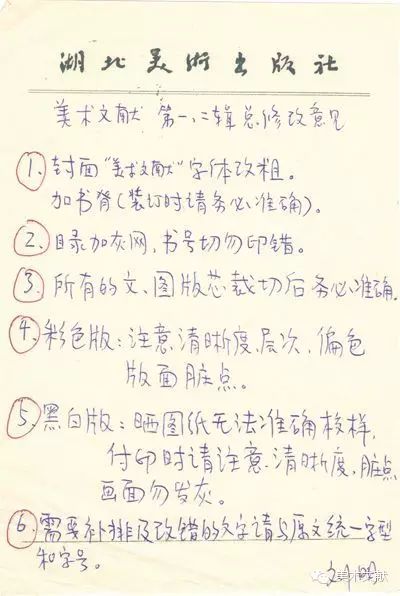 湖北美術出版社
美术文献 第一、二辑总修改意见
①. 封面“美术文献”字体改粗。
加书脊(装订时请务必准确)。
②. 目录加灰网,书号切勿印错。
③. 所有的文、图版芯裁切后务必准确。
④. 彩色版:注意清晰度、层次、偏色
版面脏点。
⑤. 黑白版:晒图纸无法准确核样,
付印时请注意清晰度、脏点
画面勿发灰。
⑥. 需要补排及改错的文字请与原文统一字型
和字号。
刘明
美术文献